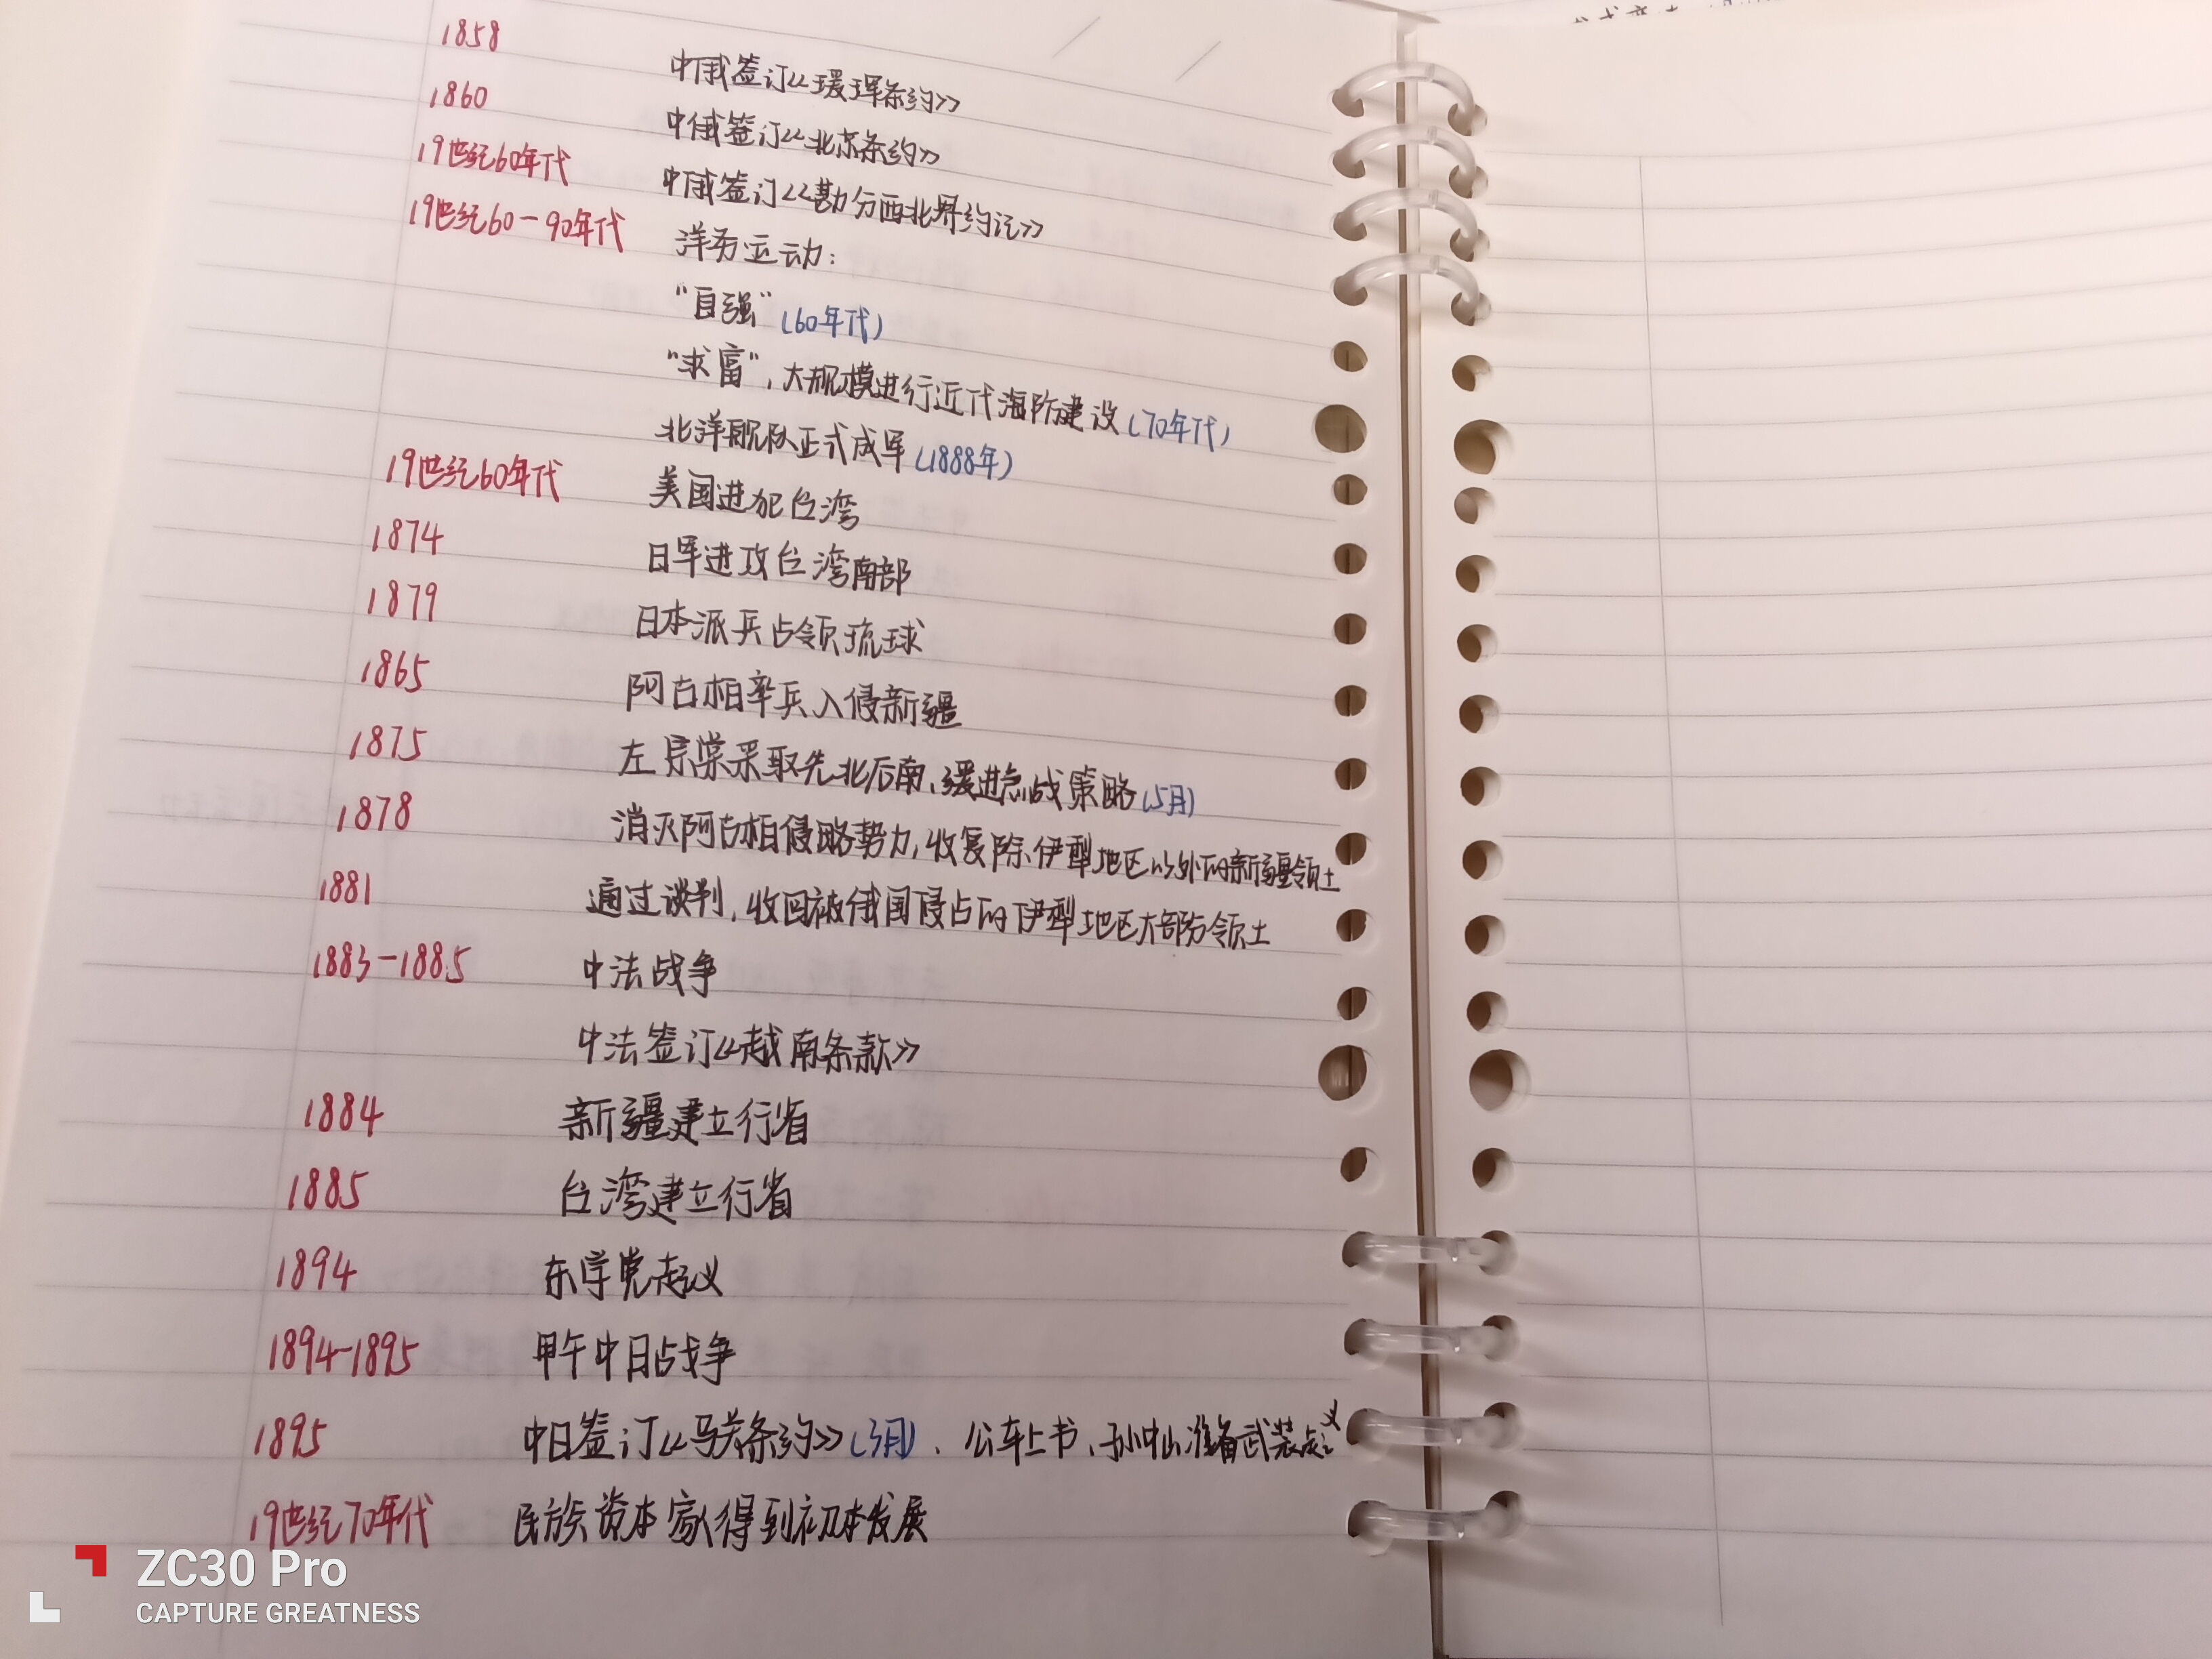 1858 中俄签订《瑷珲条约》
1860 中俄签订《北京条约》
19世纪60年代 中俄签订《勘分西北界约记》
19世纪60-90年代 洋务运动:
"自强"(60年代)
"求富",大规模进行近代海防建设(70年代)
北洋舰队正式成军(1888年)
19世纪60年代 美国进犯台湾
1874 日军进攻台湾南部
1879 日本派兵占领琉球
1865 阿古柏率兵入侵新疆
1875 左宗棠采取先北后南、缓进急战策略(5月)
1878 消灭阿古柏侵略势力,收复除伊犁地区以外的新疆领土
1881 通过谈判,收回被俄国侵占的伊犁地区大部分领土
1883-1885 中法战争
中法签订《越南条款》
1884 新疆建立行省
1885 台湾建立行省
1894 东学党起义
1894-1895 甲午中日战争
1895 中日签订《马关条约》(3月)、公车上书、孙中山准备武装起义
19世纪70年代 民族资本家得到初本发展
ZC30 Pro
CAPTURE GREATNESS